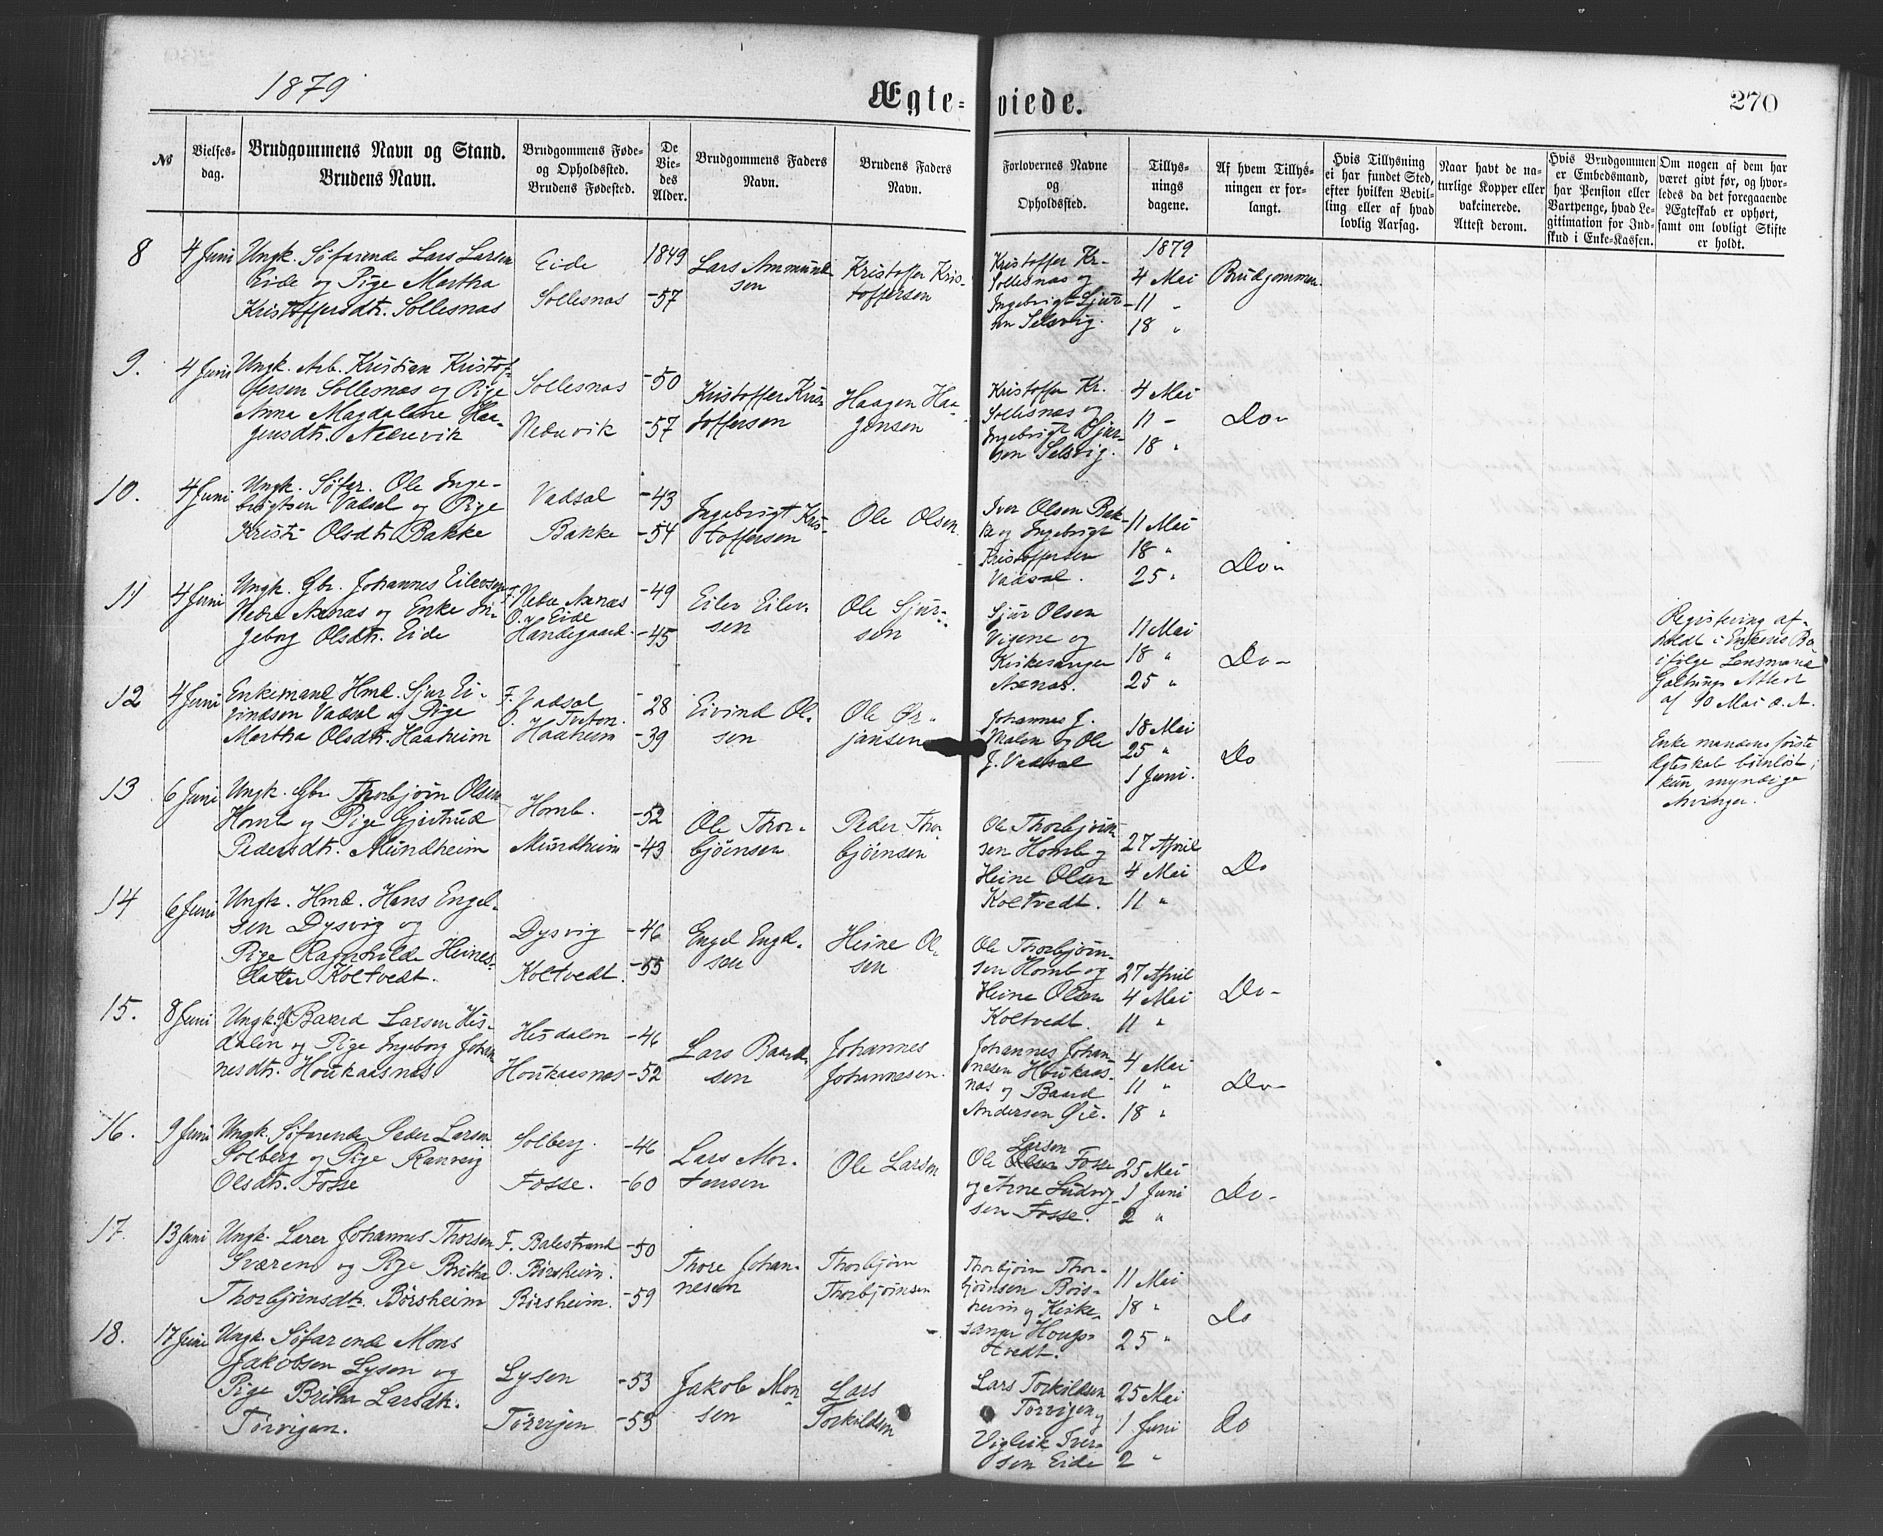 1879
Ægte-
viede.
270
No
Vielses-
dag.
Brudgommens Navn og Stand.
Brudens Navn.
Brudgommens Føde-
og Opholdsted.
Brudens Fødested.
De
Vie-
des
Alder.
Brudgommens Faders
Navn.
Brudens Faders
Navn.
Forlovernes Navne
og
Opholdsted.
Tillys-
nings
dagene.
Af hvem Tillys-
ningen er for-
langt.
Hvis Tillysning
ei har fundet Sted,
efter hvilken Bevil-
ling eller af hvad
lovlig Aarsag.
Naar havt de na-
turlige Kopper eller
vakcinerede.
Attest derom.
Hvis Brudgommen
er Embedsmand,
har Pension eller
Vartpenge, hvad Le-
gitimation for Ind-
skud i Enke-Kassen.
Om nogen af dem har
været givt før, og hvor-
ledes da det foregaaende
Ægteskab er ophørt,
samt om lovligt Skifte
er holdt.
8
4 Juni
Ungk. Søfarende Lars Larsen
Eide og Pige Martha
Kristoffersdtr. Sollesnas
Eide
Sollesnas
1849
-57
Lars Ammund
sen
Kristoffer Kris-
toffersen
Kristoffer Kr-
Sollesnas og
Ingebrigt Sjur-
sen Selsvig.
1879
4 Mai
-11 -
18 "
Brudgommen.
9.
4 Juni
Ungk. Arb. Kristian Kristof-
fersen Sollesnas og Pige
Anna Magdalene Haa-
gensdtr. Nedrevik
Sollesnas
Nedrevik
-50
-57
Kristoffer Kris-
toffersen
Haagen Haa-
gensen
Kristoffer Kr.
Sollesnas og
Ingebrigt Sjur-
sen Selsvig.
4 Mai
11 -
18 "
Do-
10.
4 Juni
Ungk. Søfar. Ole Inge-
brigtsen Vadsal og Pige
Kristi Olsdtr. Bakke
Vadsal
Bakke
-43
-54
Ingebrigt Kris-
toffersen
Ole Olsen.
Iver Olsen Bak-
ke og Ingebrigt
Kristoffersen
Vadsal.
11 Mai
18 "
25 "
Do-
11
4 Juni
Ungk. Gbr. Johannes Eilevsen
Nedre Axnas og Enke In-
geborg Olsdtr. Eide
F. Nedre Axnas
O. Eide
Handegaard.
-49
-45
Eilev Eilev-
sen
Ole Sjur-
sen
Sjur Olsen
Vigene og
Kirkesanger
Axnas.
11 Mai
18 "
25 "
Do-
Registering af-
holdt i Enkens Bo
ifølge Lensmand
Galtungs Attest
af 10 Mai d. A.
12
4 Juni
Enkemand Hmd. Sjur Ei-
vindsen Vadsal og Pige
Martha Olsdtr. Haaheim
F. Vadsal
O. Tveten.
Haaheim
-28
-39
Eivind Ol-
sen
Ole Ør-
jansen
Johannes J.
Malen og Ole
J. Vadsal
18 Mai
25 "
1 Juni.
Do
Enkemandens første
Ægteskab børnløst;
kun myndige
Arvinger.
13
6 Juni
Ungk. Gbr Thorbjørn Olsen
Homb og Pige Gjertrud
Pedersdtr. Mundheim
Homb.
Mundheim
-52
-43
Ole Thor-
bjørnsen
Peder Thor-
bjørnsen
Ole Thorbjørn-
sen Homb og
Heine Olsen
Koltvedt.
27 April
4 Mai
11 "
Do
14
6 Juni
Ungk. Hmd. Hans Engel-
sen Dysvig og
Pige Ragnhilde Heines-
datter Koltvedt.
Dysvig
Koltvedt.
-46
-55
Engel Engel-
sen
Heine Ol-
sen
Ole Thorbjørn-
sen Homb og
Heine Olsen
Koltvedt.
27 April
4 Mai
11 "
Do-
15.
8 Juni
Ungk. Baard Larsen His-
dalen og Pige Ingeborg Johan-
nesdtr. Houkaasnas
Hisdalen
Houkaasnas
-46
-52
Lars Baard-
sen
Johannes
Johannesen.
Johannes Johan-
nesen Houkaas-
nas og Baard
Andersen Øie.
4 Mai
11 "
18 "
Do-
16.
9 Juni
Ungk. Søfarende Peder Larsen
Solberg og Pige Ranveig
Olsdtr. Fosse
Solberg.
Fosse.
-46
-60
Lars Mor-
tensen
Ole Larsen
Larsen
Ole Olsen Fosse
og Arne Ludvig-
sen Fosse.
25 Mai
1 Juni
2 "
Do-
17.
13 Juni
Ungk. Lærer Johannes Thorsen
Sværen og Pige Britha
Thorbjørnsdtr. Børsheim
F. Balestrand
O. Børsheim.
Børsheim.
-50
-59
Thore Johan-
nesen
Thorbjørn
Thorbjørnsen
Thorbjørn Thor-
bjørnsen Børs-
heim og Kirke-
sanger Hougs-
tvedt.
11 Mai
18 "
25 "
Do
18.
17 Juni
Ungk. Søfarende Mons
Jakobsen Lysen og
Pige Britha Larsdtr.
Torvigen.
Lysen
Torvigen
-53
-53
Jakob Mon-
sen
Lars
Torkildsen
Lars Torkildsen
Torvigen og
Viglik Iver-
sen Eide
25 Mai
1 Juni
2 "
Do